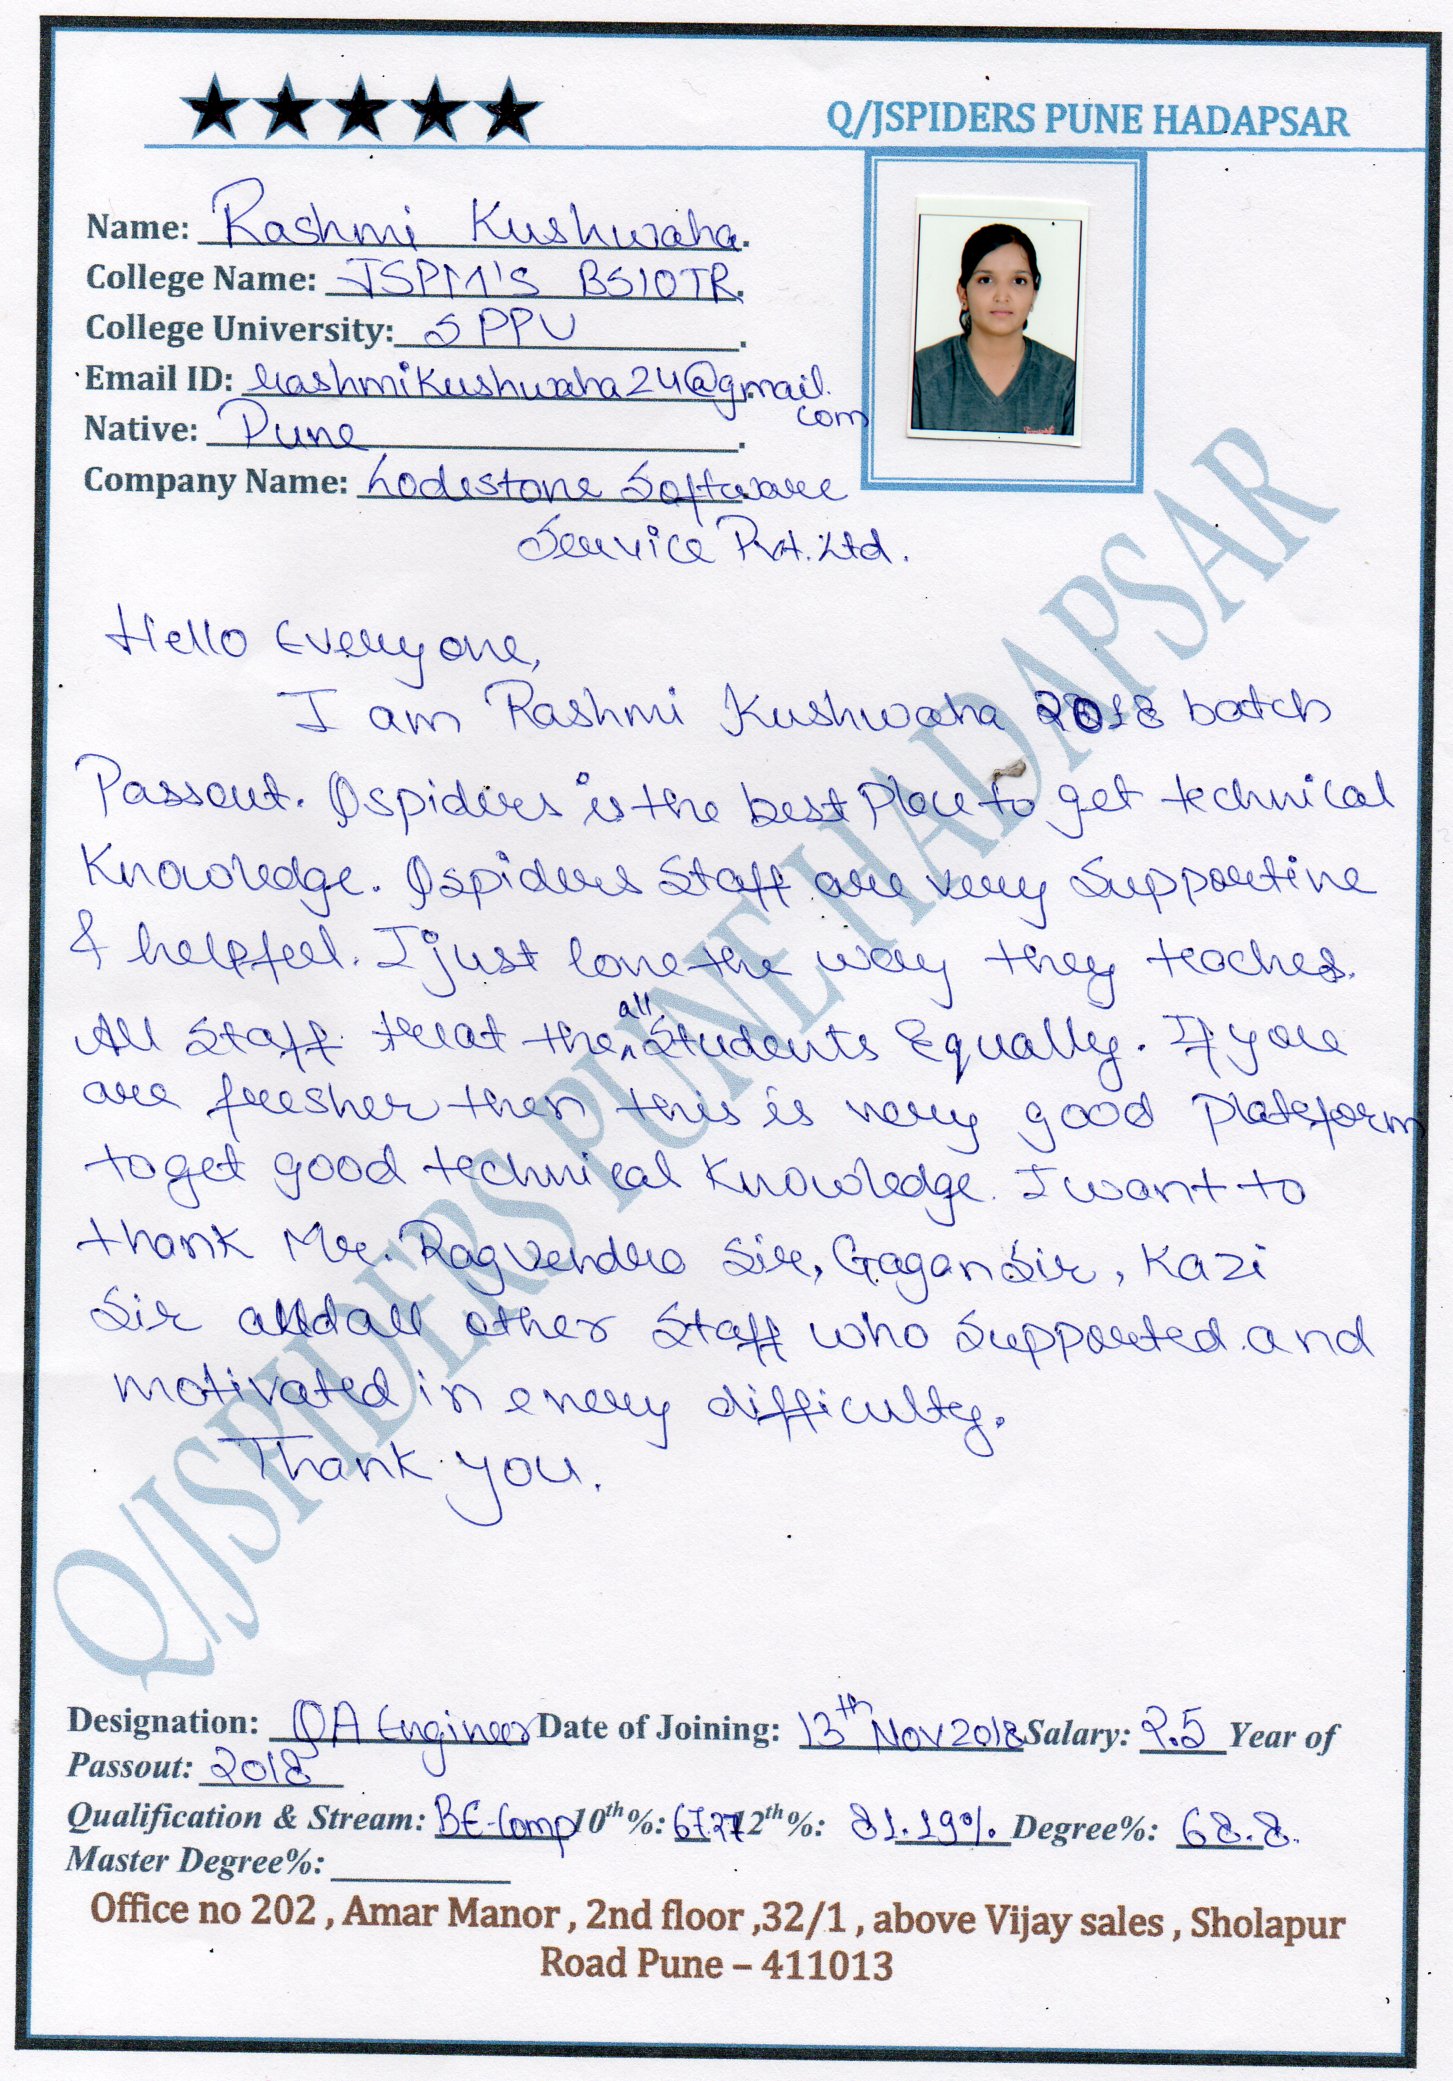 Q/JSPIDERS PUNE HADAPSAR
Name: Rashmi Kushwaha.
College Name: JSPM'S BSIOTR.
College University: SPPU.
Email ID: rashmikushwaha24@gmail.
com
Native: Pune.
Company Name: Lodestone Software
Service Pvt. Ltd.
Hello Everyone,
I am Rashmi Kushwaha 2018 batch
Passout. Qspiders is the best Place to get technical
Knowledge. Qspiders Staff are very Supportive
& helpful. I just love the way they teaches.
All Staff treat the all Students Equally. If you
are fresher then this is very good Plateform
to get good technical Knowledge. I want to
thank Mr. Ragvendra Sir, Gagan Sir, Kazi
Sir and all other Staff who Supported and
motivated in every difficulty.
Thank you.
Q/JSPIDERS PUNE HADAPSAR
Designation: QA Engineer Date of Joining: 13th Nov 2018 Salary: 2.5 Year of
Passout: 2018
Qualification & Stream: BE-Comp 10th%: 67.27 12th%: 81.19% Degree%: 68.8.
Master Degree%:
Office no 202 , Amar Manor , 2nd floor ,32/1 , above Vijay sales , Sholapur
Road Pune – 411013